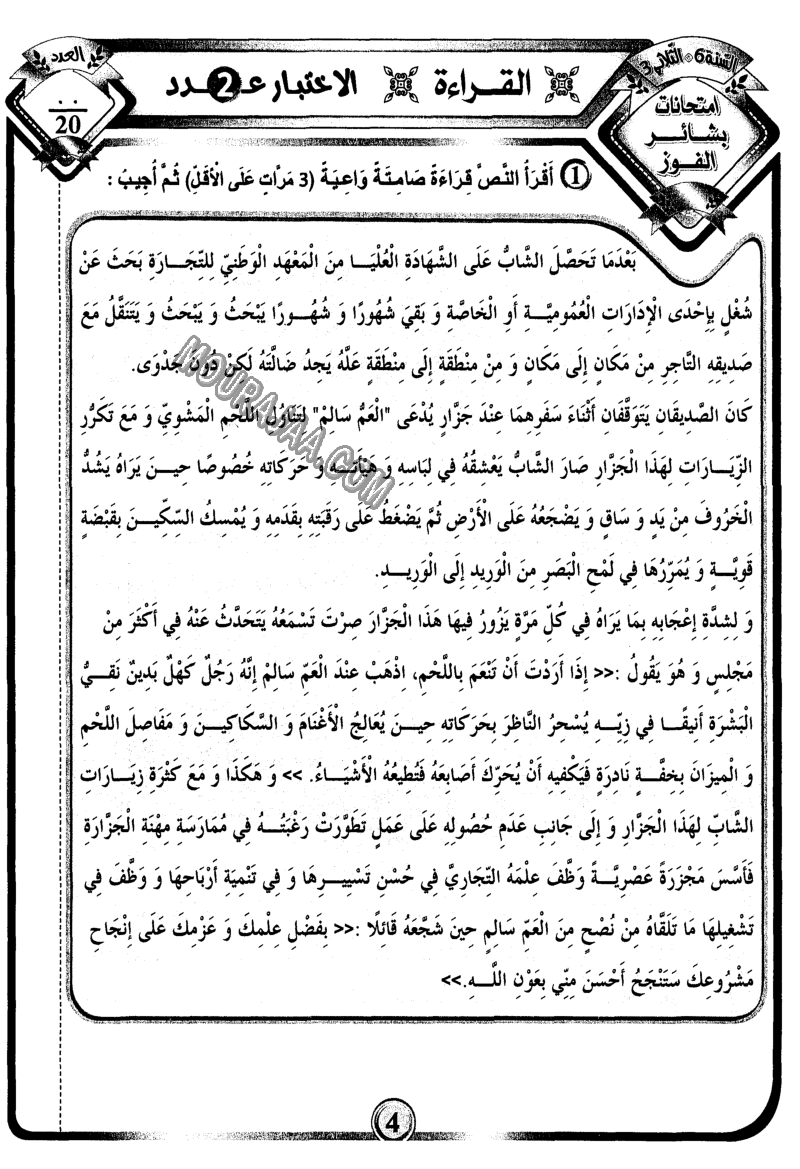 السّنة 6 - الثّلاثي 3
امتحانات
بشائر
الفوز
القراءة
الاختبار عـ2ـدد
العدد
..
20
1 أَقْرَأُ النَّصَّ قِرَاءَةً صَامِتَةً وَاعِيَةً (3 مَرَّاتٍ عَلَى الْأَقَلِّ) ثُمَّ أُجِيبُ :
بَعْدَمَا تَحَصَّلَ الشَّابُّ عَلَى الشَّهَادَةِ الْعُلْيَا مِنَ الْمَعْهَدِ الْوَطَنِيِّ لِلتِّجَارَةِ بَحَثَ عَنْ
شُغْلٍ بِإِحْدَى الْإِدَارَاتِ الْعُمُومِيَّةِ أَوِ الْخَاصَّةِ وَ بَقِيَ شُهُورًا وَ شُهُورًا يَبْحَثُ وَ يَبْحَثُ وَ يَتَنَقَّلُ مَعَ
صَدِيقِهِ التَّاجِرِ مِنْ مَكَانٍ إِلَى مَكَانٍ وَ مِنْ مِنْطَقَةٍ إِلَى مِنْطَقَةٍ عَلَّهُ يَجِدُ ضَالَّتَهُ لَكِنْ دُونَ جَدْوَى.
كَانَ الصَّدِيقَانِ يَتَوَقَّفَانِ أَثْنَاءَ سَفَرِهِمَا عِنْدَ جَزَّارٍ يُدْعَى "الْعَمُّ سَالِمْ" لِتَنَاوُلِ اللَّحْمِ الْمَشْوِيِّ وَ مَعَ تَكَرُّرِ
الزِّيَارَاتِ لِهَذَا الْجَزَّارِ صَارَ الشَّابُّ يَعْشِقُهُ فِي لِبَاسِهِ وَ هَيْأَتِهِ وَ حَرَكَاتِهِ خُصُوصًا حِينَ يَرَاهُ يَشُدُّ
الْخَرُوفَ مِنْ يَدٍ وَ سَاقٍ وَ يَضْجَعُهُ عَلَى الْأَرْضِ ثُمَّ يَضْغَطُ عَلَى رَقَبَتِهِ بِقَدَمِهِ وَ يُمْسِكُ السِّكِّينَ بِقَبْضَةٍ
قَوِيَّةٍ وَ يُمَرِّرُهَا فِي لَمْحِ الْبَصَرِ مِنَ الْوَرِيدِ إِلَى الْوَرِيدِ.
وَ لِشِدَّةِ إِعْجَابِهِ بِمَا يَرَاهُ فِي كُلِّ مَرَّةٍ يَزُورُ فِيهَا هَذَا الْجَزَّارَ صِرْتَ تَسْمَعُهُ يَتَحَدَّثُ عَنْهُ فِي أَكْثَرَ مِنْ
مَجْلِسٍ وَ هُوَ يَقُولُ :<< إِذَا أَرَدْتَ أَنْ تَنْعَمَ بِاللَّحْمِ، اِذْهَبْ عِنْدَ الْعَمِّ سَالِمْ إِنَّهُ رَجُلٌ كَهْلٌ بَدِينٌ نَقِيُّ
الْبَشْرَةِ أَنِيقًا فِي زِيِّهِ يُسْحِرُ النَّاظِرَ بِحَرَكَاتِهِ حِينَ يُعَالِجُ الْأَغْنَامَ وَ السَّكَاكِينَ وَ مَفَاصِلَ اللَّحْمِ
وَ الْمِيزَانَ بِخِفَّةٍ نَادِرَةٍ فَيَكْفِيهِ أَنْ يُحَرِّكَ أَصَابِعَهُ فَتُطِيعُهُ الْأَشْيَاءُ. >> وَ هَكَذَا وَ مَعَ كَثْرَةِ زِيَارَاتِ
الشَّابِّ لِهَذَا الْجَزَّارِ وَ إِلَى جَانِبِ عَدَمِ حُصُولِهِ عَلَى عَمَلٍ تَطَوَّرَتْ رَغْبَتُهُ فِي مُمَارَسَةِ مِهْنَةِ الْجَزَارَةِ
فَأَسَّسَ مَجْزَرَةً عَصْرِيَّةً وَظَّفَ عِلْمَهُ التِّجَارِيَّ فِي حُسْنِ تَسْيِيرِهَا وَ فِي تَنْمِيَةِ أَرْبَاحِهَا وَ وَظَّفَ فِي
تَشْغِيلِهَا مَا تَلَقَّاهُ مِنْ نُصْحٍ مِنَ الْعَمِّ سَالِمٍ حِينَ شَجَّعَهُ قَائِلًا :<< بِفَضْلِ عِلْمِكَ وَ عَزْمِكَ عَلَى إِنْجَاحِ
مَشْرُوعِكَ سَتَنْجَحُ أَحْسَنَ مِنِّي بِعَوْنِ اللَّهِ.>>
MOURAJAA.COM
4